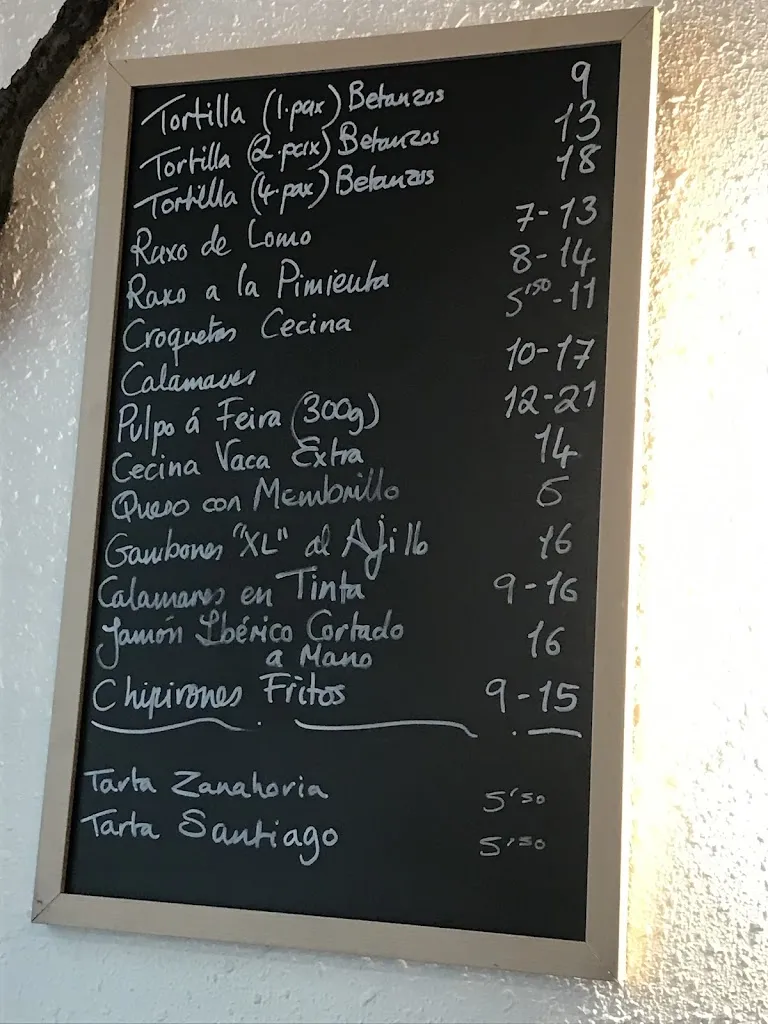 Tortilla (1.pax) Betanzos 9
Tortilla (2.pax) Betanzos 13
Tortilla (4.pax) Betanzos 18
Raxo de Lomo 7-13
Raxo a la Pimienta 8-14
Croquetas Cecina 5'50-11
Calamares 10-17
Pulpo á Feira (300g) 12-21
Cecina Vaca Extra 14
Queso con Membrillo 6
Gambones "XL" al Ajillo 16
Calamares en Tinta 9-16
Jamón Ibérico Cortado 16
a Mano
Chipirones Fritos 9-15
Tarta Zanahoria 5'50
Tarta Santiago 5'50